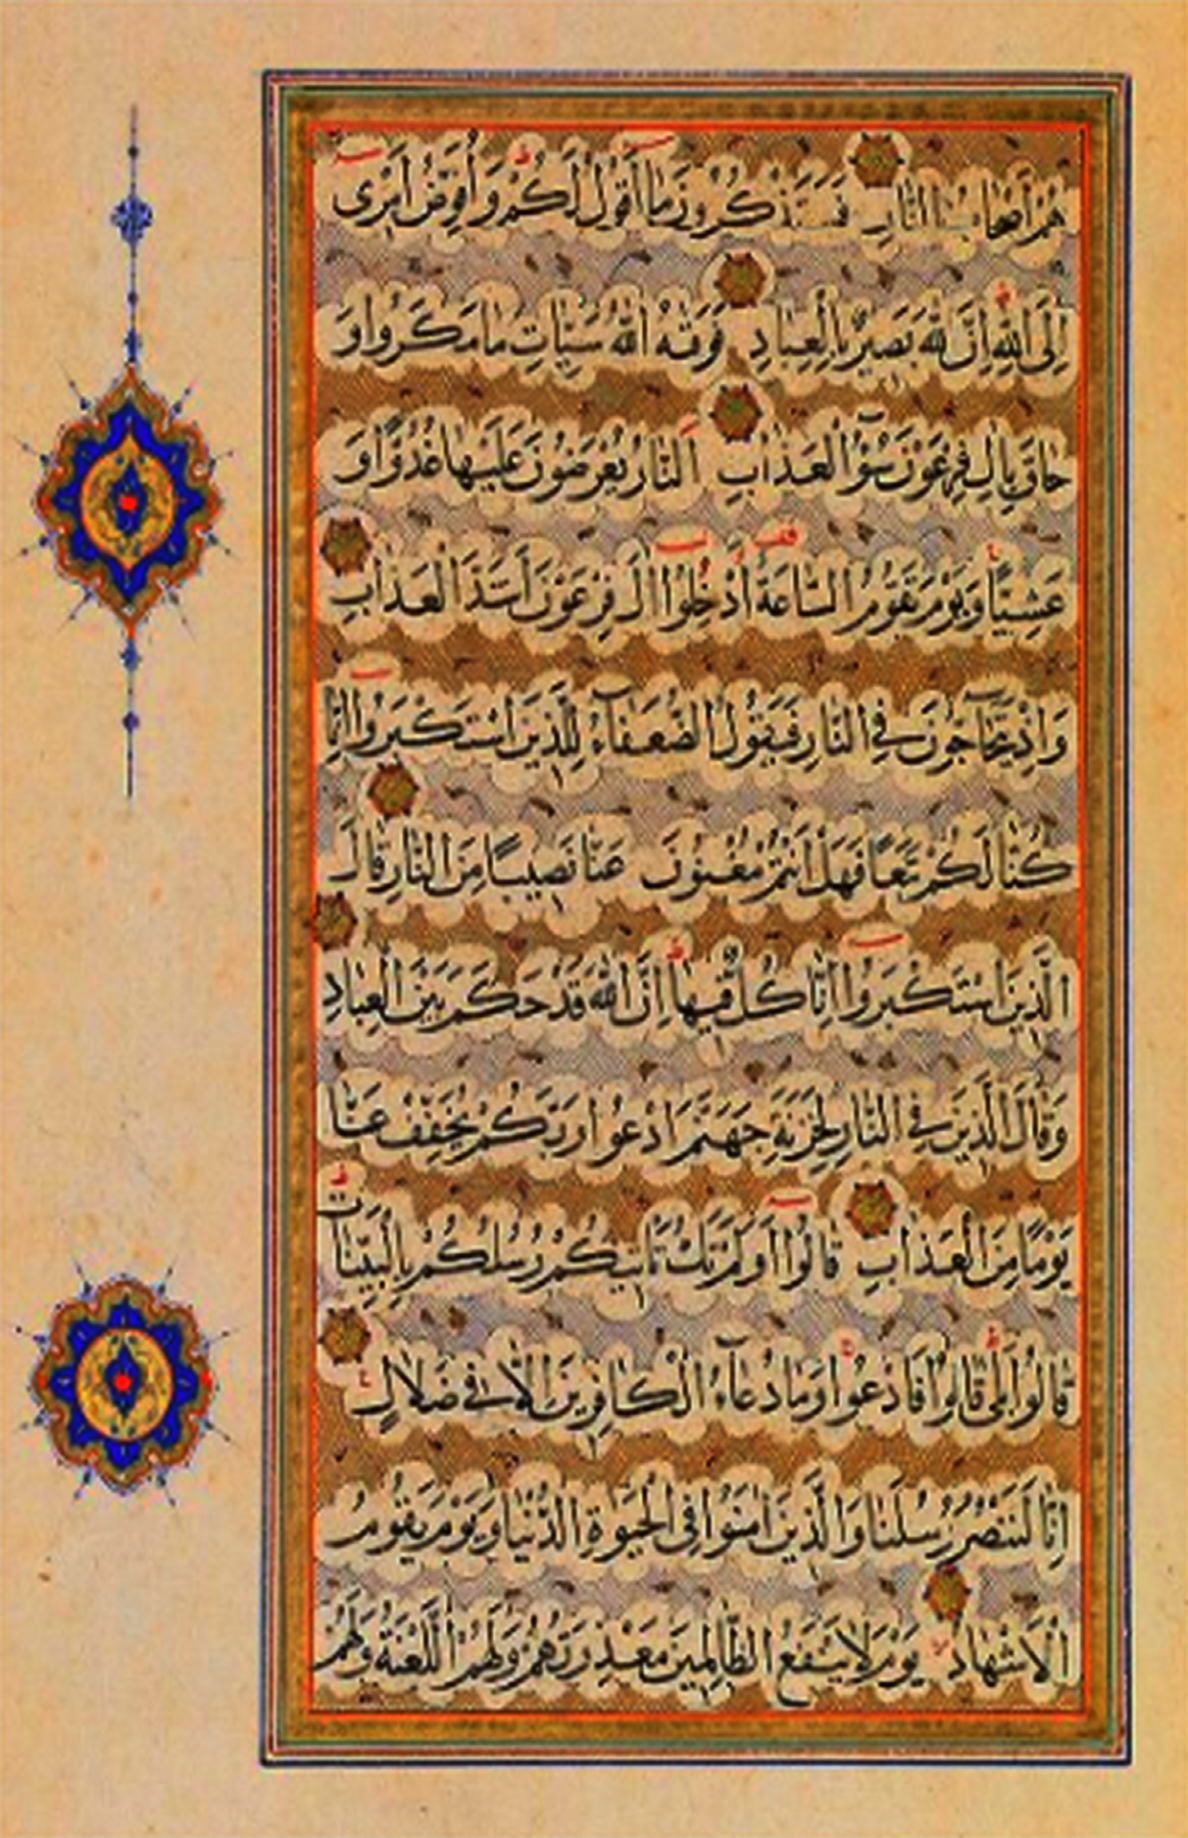 هُمْ أَصْحَابُ النَّارِ فَسَتَذْكُرُونَ مَا أَقُولُ لَكُمْ وَأُفَوِّضُ أَمْرِى
إِلَى اللَّهِ إِنَّ اللَّهَ بَصِيرٌ بِالْعِبَادِ فَوَقٰهُ اللَّهُ سَيِّاتِ مَا مَكَرُوا وَ
حَاقَ بِاٰلِ فِرْعَوْنَ سُوٓءُ الْعَذَابِ اَلنَّارُ يُعْرَضُونَ عَلَيْهَا غُدُوًّا وَ
عَشِيًّا وَيَوْمَ تَقُومُ السَّاعَةُ أَدْخِلُوا اٰلَ فِرْعَوْنَ أَشَدَّ الْعَذَابِ
وَإِذْ يَتَحَاجُّونَ فِي النَّارِ فَيَقُولُ الضُّعَفَاءُ لِلَّذِينَ اسْتَكْبَرُوا إِنَّا
كُنَّا لَكُمْ تَبَعًا فَهَلْ أَنْتُمْ مُغْنُونَ عَنَّا نَصِيبًا مِنَ النَّارِ قَالَ
الَّذِينَ اسْتَكْبَرُوا إِنَّا كُلٌّ فِيهَا إِنَّ اللَّهَ قَدْ حَكَمَ بَيْنَ الْعِبَادِ
وَقَالَ الَّذِينَ فِي النَّارِ لِخَزَنَةِ جَهَنَّمَ ادْعُوا رَبَّكُمْ يُخَفِّفْ عَنَّا
يَوْمًا مِنَ الْعَذَابِ قَالُوا أَوَلَمْ تَكُ تَأْتِيكُمْ رُسُلُكُمْ بِالْبَيِّنَاتِ
قَالُوا بَلٰى قَالُوا فَادْعُوا وَمَا دُعَاءُ الْكَافِرِينَ إِلَّا فِي ضَلَالٍ
إِنَّا لَنَنْصُرُ رُسُلَنَا وَالَّذِينَ اٰمَنُوا فِي الْحَيٰوةِ الدُّنْيَا وَيَوْمَ يَقُومُ
الْأَشْهَادُ يَوْمَ لَا يَنْفَعُ الظَّالِمِينَ مَعْذِرَتُهُمْ وَلَهُمُ اللَّعْنَةُ وَلَهُمْ